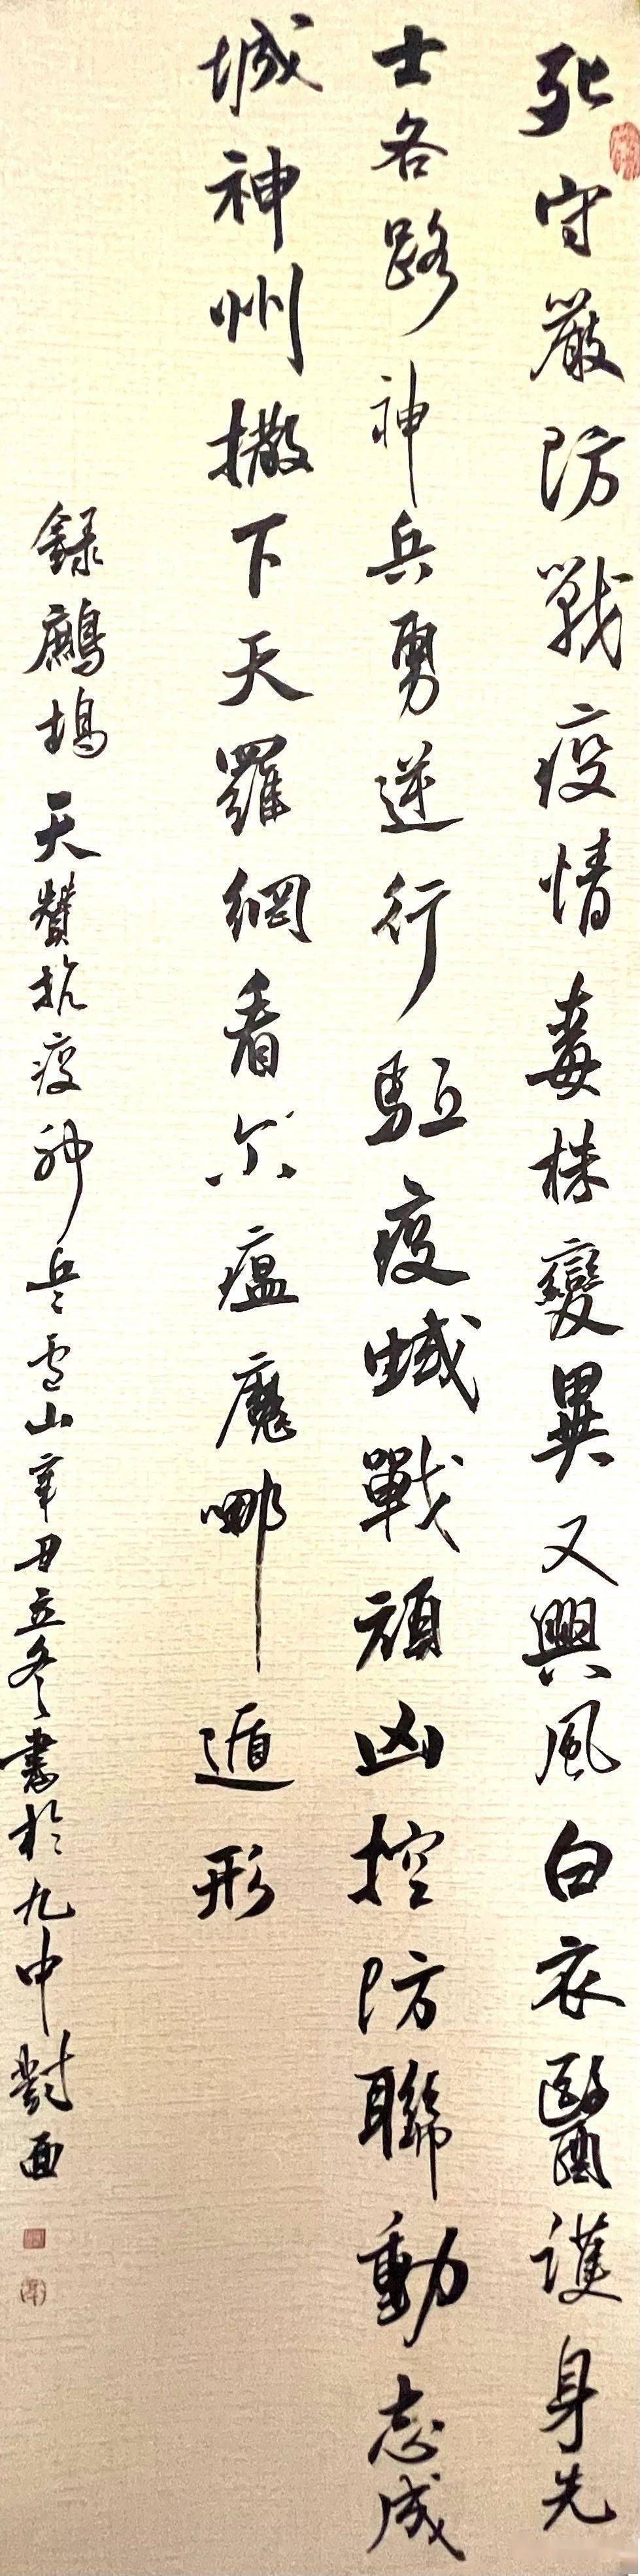 死守嚴防戰疫情毒株變異又興風白衣醫護身先
士各路神兵勇逆行驅疫蜮戰頑凶控防聯動志成
城神州撒下天羅網看尔瘟魔哪遁形
錄鷓鴣天贊抗疫神兵 山辛丑立冬書於九中對面